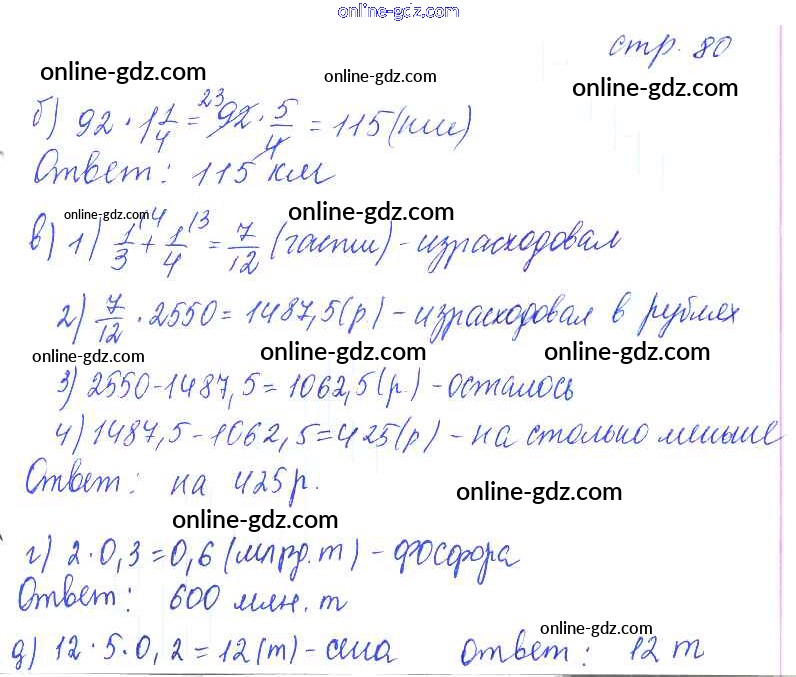 online-gdz.com
стр. 80
online-gdz.com online-gdz.com online-gdz.com
б) 92 · 1 1/4 = 92 23 · 5/4 = 115 (км)
Ответ: 115 км
online-gdz.com online-gdz.com
в) 1) 1/3 \4 + 1/4 \3 = 7/12 (части) - израсходовал
2) 7/12 · 2550 = 1487,5 (р) - израсходовал в рублях
online-gdz.com online-gdz.com online-gdz.com
3) 2550-1487,5=1062,5(р.) - осталось
4) 1487,5-1062,5=425(р) - на столько меньше
Ответ: на 425р.
online-gdz.com
online-gdz.com
г) 2·0,3=0,6 (млрд.т) - фосфора
Ответ: 600 млн.т
online-gdz.com
д) 12·5·0,2=12(т) - сена Ответ: 12 т
online-gdz.com